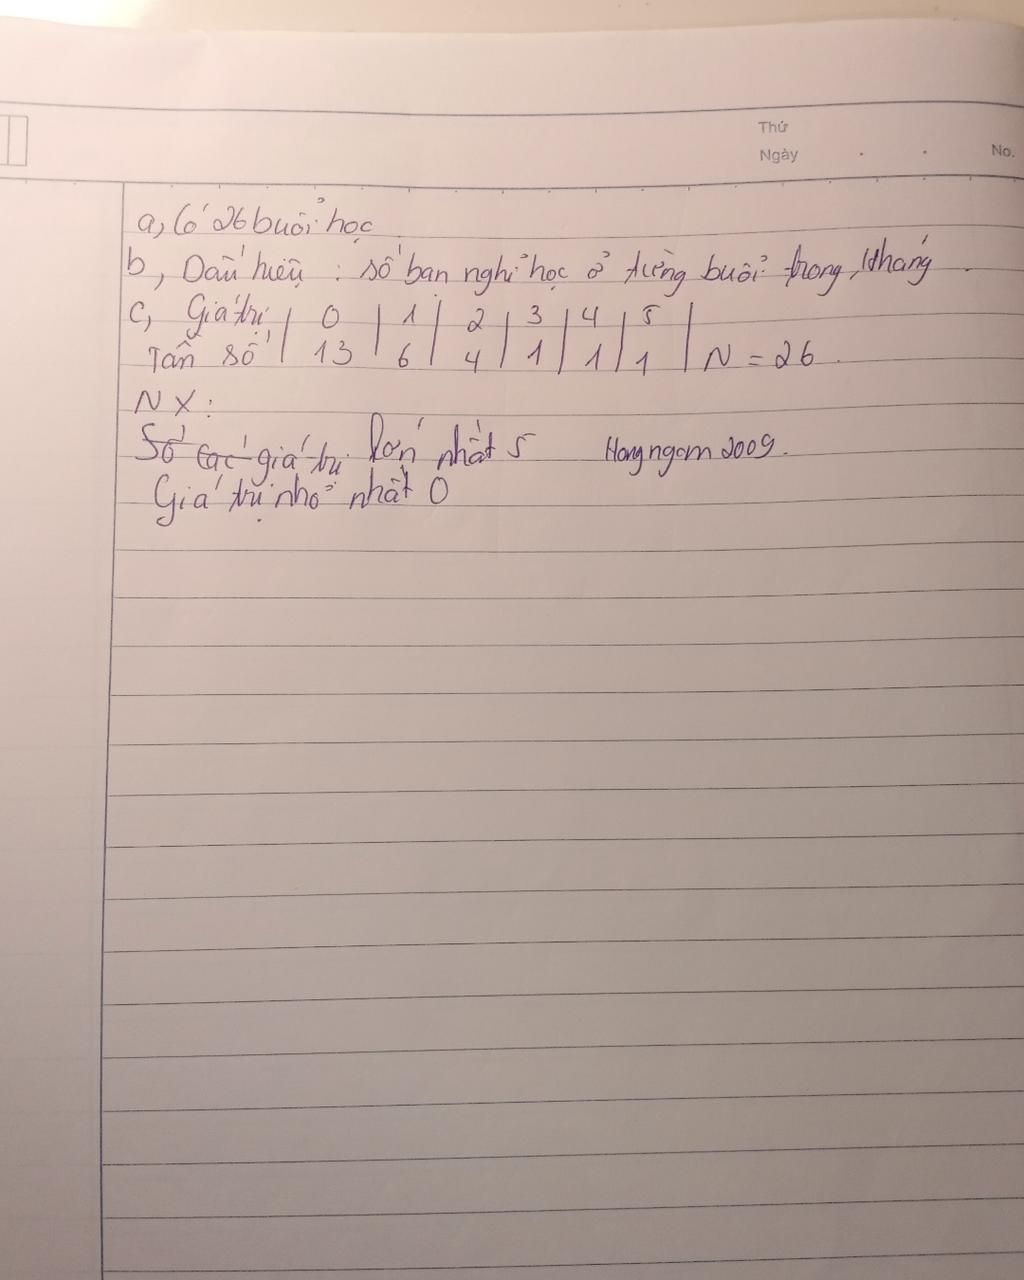 Thứ
Ngày . . No.
a, Có 26 buổi học
b, Dấu hiệu : số bạn nghỉ học ở từng buổi trong 1 tháng .
c, Giá trị | 0 | 1 | 2 | 3 | 4 | 5 |
Tần số | 13 | 6 | 4 | 1 | 1 | 1 | N = 26 .
NX :
Số các giá trị lớn nhất 5 Hangngam2009.
Giá trị nhỏ nhất 0